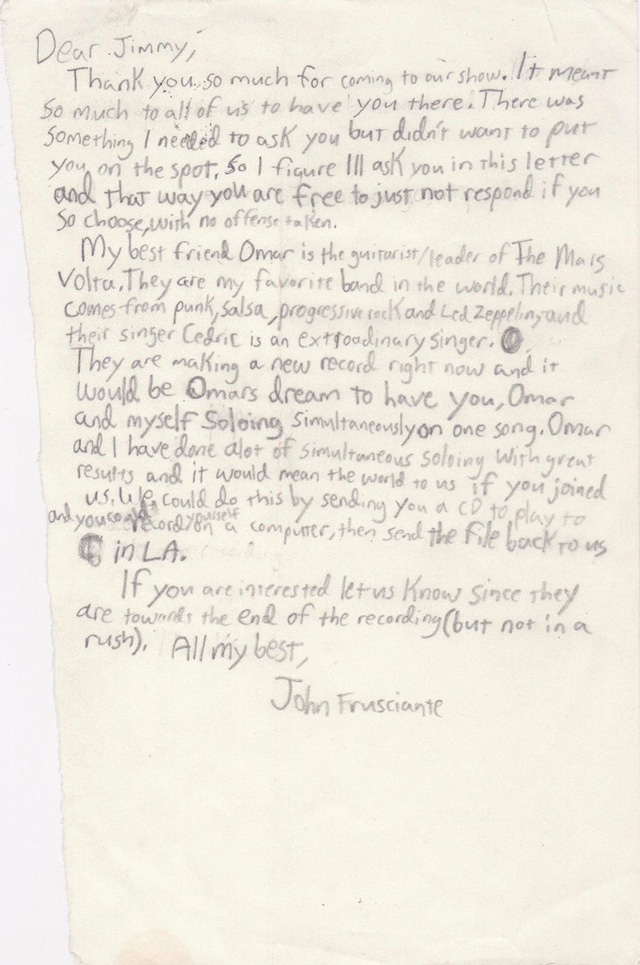 Dear Jimmy,
Thank you so much for coming to our show. It meant
so much to all of us to have you there. There was
something I needed to ask you but didn't want to put
you on the spot, so I figure Ill ask you in this letter
and that way you are free to just not respond if you
so choose, with no offense taken.
My best friend Omar is the guitarist/leader of The Mars
Volta. They are my favorite band in the world. Their music
comes from punk, salsa, progressive rock and Led Zeppelin, and
their singer Cedric is an extroadinary singer.
They are making a new record right now and it
would be Omars dream to have you, Omar
and myself soloing simultaneously on one song. Omar
and I have done alot of simultaneous soloing with great
results and it would mean the world to us if you joined
us. We could do this by sending you a CD to play to
and you could record yourself on a computer, then send the file back to us
in LA.
If you are interested let us know since they
are towards the end of the recording (but not in a
rush). All my best,
John Frusciante